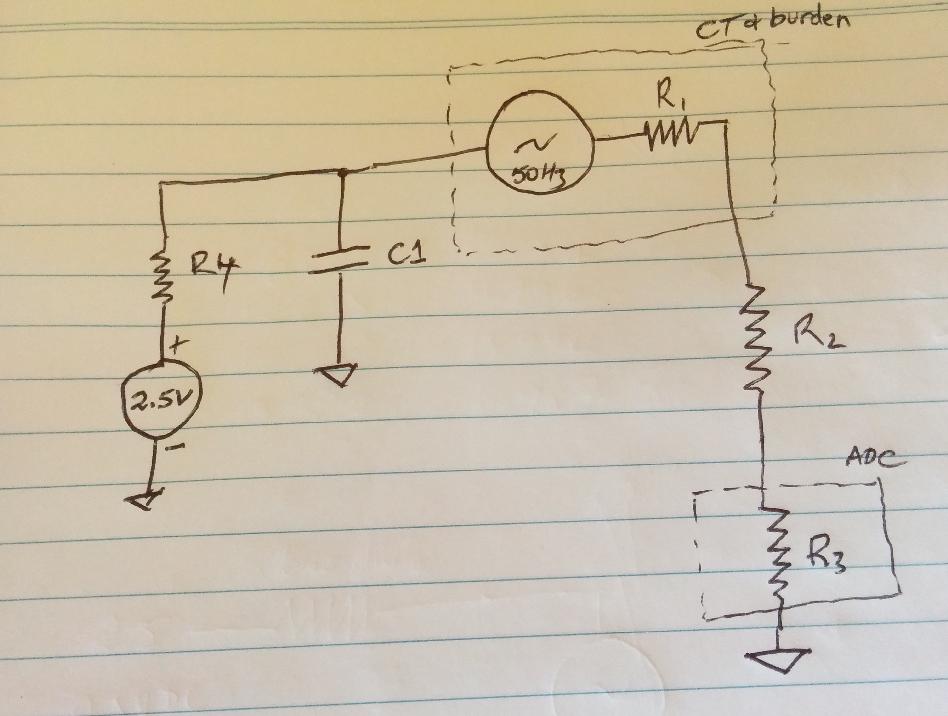 CT & burden
R1
50Hz
C1
R4
+
2.5V
-
R2
ADC
R3